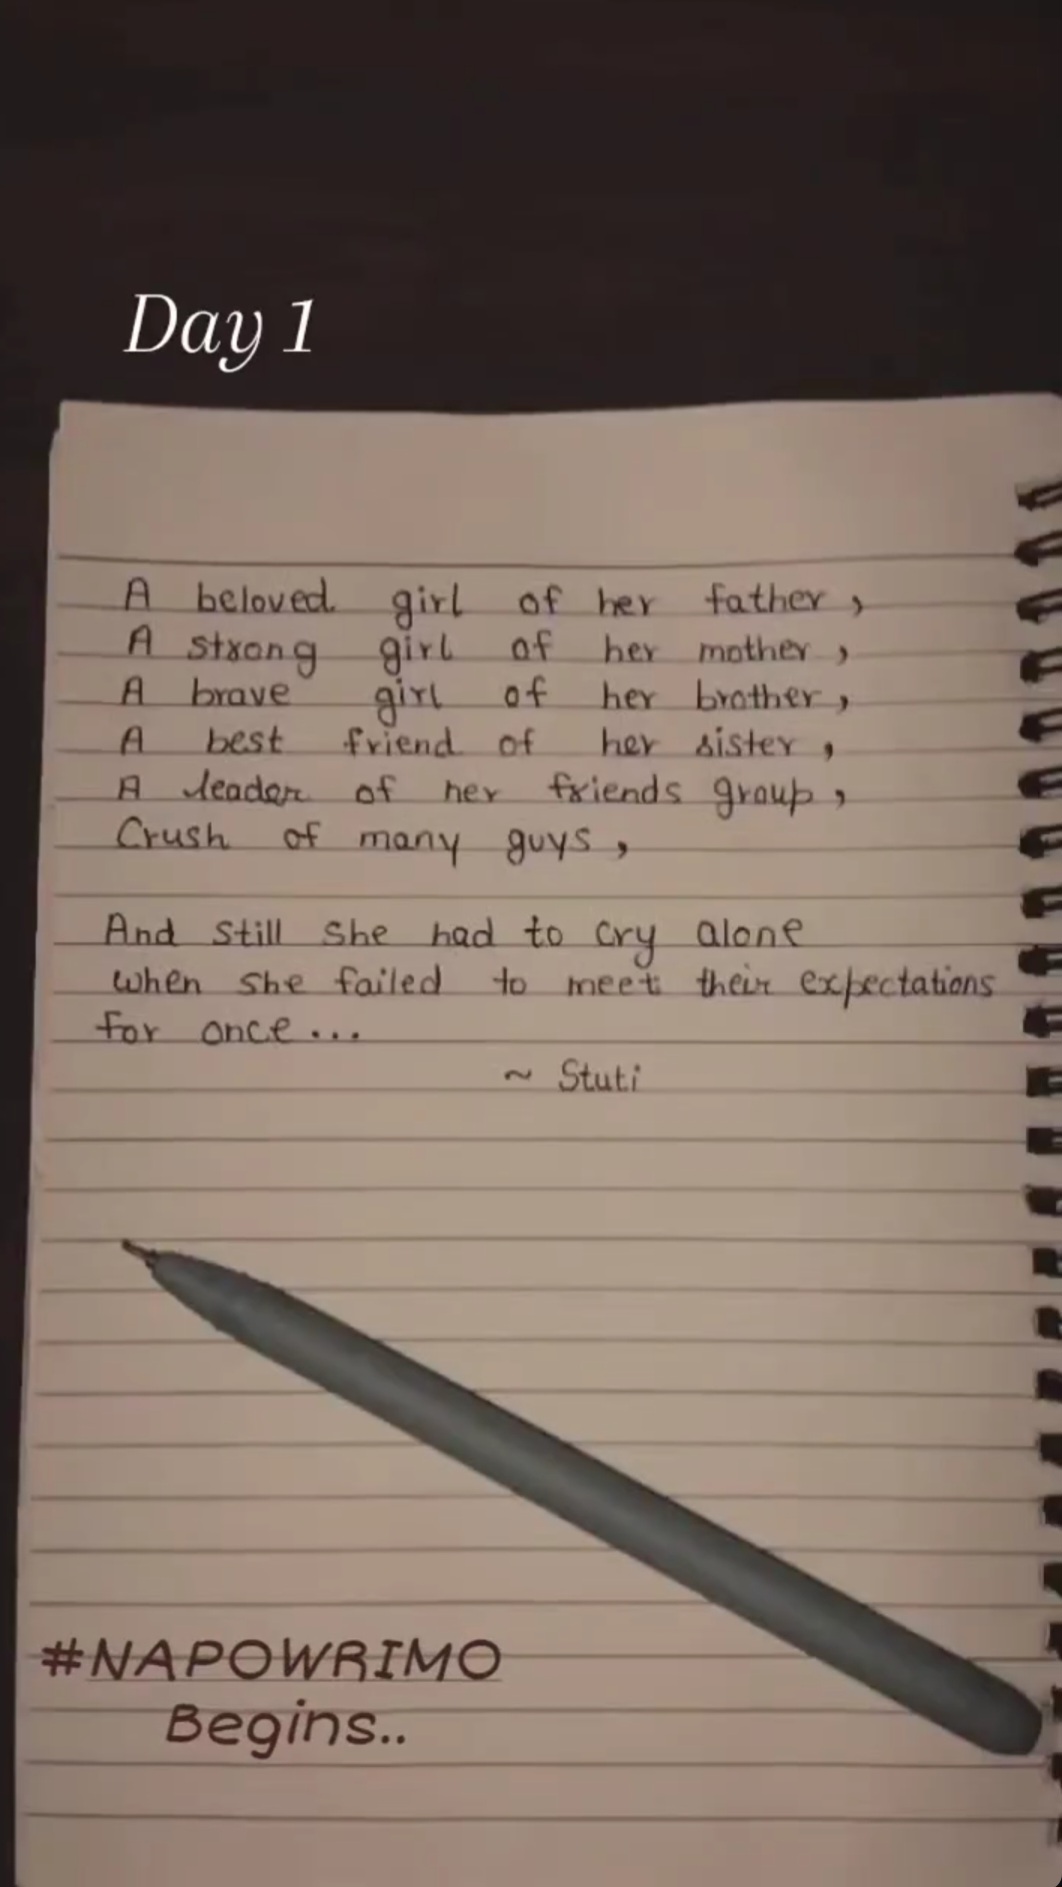 Day 1
A beloved girl of her father,
A strong girl of her mother,
A brave girl of her brother,
A best friend of her sister,
A leader of her friends group,
Crush of many guys,
And still she had to cry alone
when she failed to meet their expectations
for once...
~ Stuti
#NAPOWRIMO
Begins..